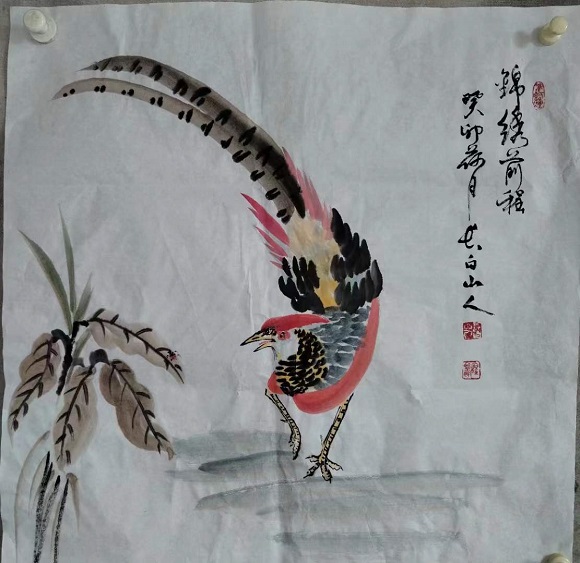 錦绣前程
癸卯荷月长白山人